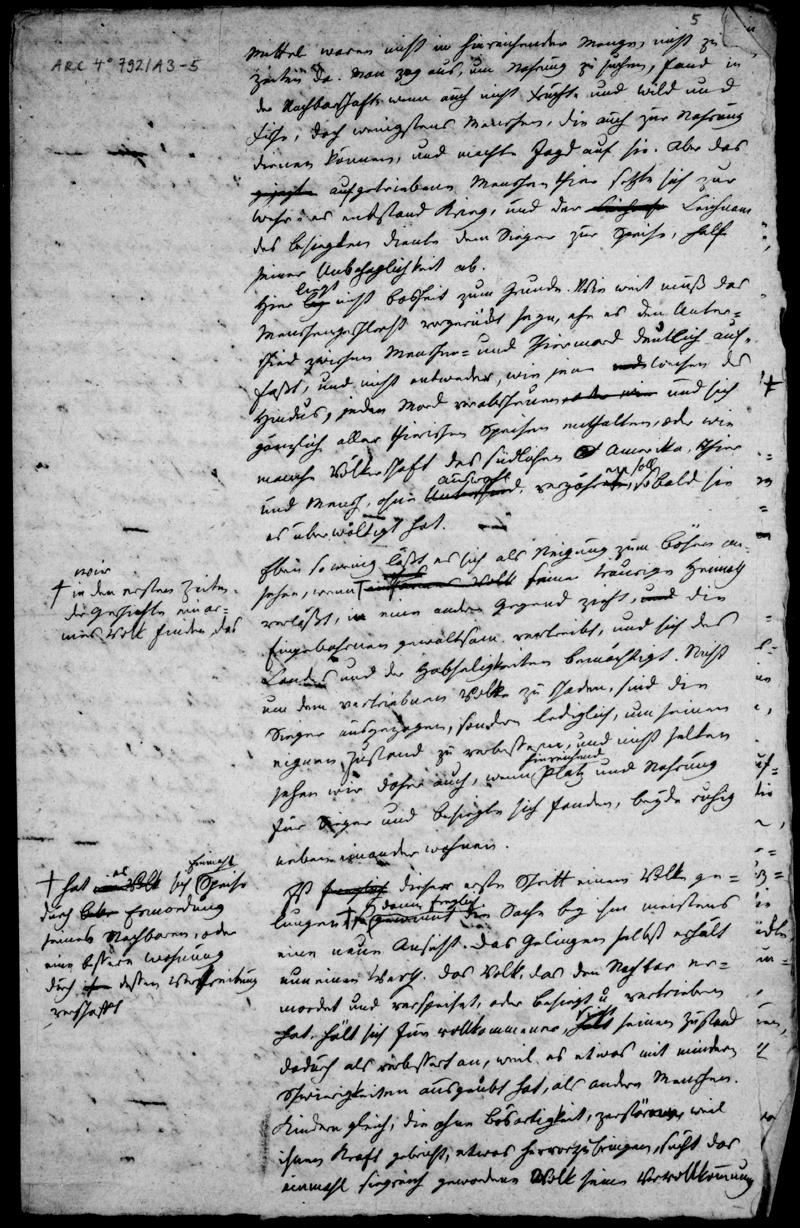 5
ARC 4° 792/A3-5
Mittel waren nicht in hinreichender Menge, nicht zu
Zeiten da. Man zog aus, um Nahrung zu suchen, fand in
der Nachbarschaft wenn auch nicht Früchte und Wild und
Fische, doch wenigstens Menschen, die auch zur Nahrung
dienen können, und machte Jagd auf sie. Aber das
aufgetriebene Menschenthier setzte sich zur
Wehr: es entstand Krieg, und der Leichnam
des Besiegten diente dem Sieger zur Speise, half
seiner Unbehaglichkeit ab.
Hier liegt nicht Bosheit zum Grunde. Wie weit muß das
Menschengeschlecht vorgerückt seyn, ehe es den Unter=
schied zwischen Menschen= und Thiermord deutlich auf=
faßt, und nicht entweder, wie jene des
Hindus, jeden Mord verabscheuen und sich
gänzlich aller thierischen Speisen enthalten, oder wie
manche Völkerschaft des südlichen Amerika, Thier
und Mensch, ohne Auswahl, verzehren soll, sobald sie
es überwältigt hat.
Eben so wenig läßt es sich als Neigung zum Bösen an=
sehen, wenn seine traurige Heimath
verläßt, in eine andre Gegend zieht, und die
Eingebohrnen gewaltsam vertreibt, und sich des
Landes und der Habseligkeiten bemächtigt. Nicht
um dem vertriebenen Volke zu schaden, sind die
Sieger ausgezogen, sondern lediglich, um seinen
eignen Zustand zu verbessern, und nicht selten
sehen wir daher auch, wenn hinreichend Platz und Nahrung
für Sieger und Besiegte sich fanden, beyde ruhig
neben einander wohnen.
Ist dieser erste Schritt einem Volke ge=
lungen, die Sache bey ihm meistens
eine neue Ansicht. Das Gelingen selbst erhält
nun einen Werth. Das Volk, das den Nachbar er=
mordet und verspeiset, oder besiegt u vertrieben
hat, hält sich für vollkommener, sieht seinen Zustand
dadurch als verbessert an, weil es etwas mit mindern
Schwierigkeiten ausgeübt hat, als andere Menschen.
Kindern gleich, die ohne Bösartigkeit, zerstören, weil
ihnen Kraft gebricht, etwas hervorzubringen, sucht das
einmahl siegreich gewordene Volk seine Vervollkomnung
wir
† in den ersten Zeiten
der Geschichte ein ar=
mes Volk finden, das
† hat es sich einmahl Speise
durch Ermordung
seines Nachbaren, oder
eine bessere Wohnung
durch dessen Vertreibung
verschafft